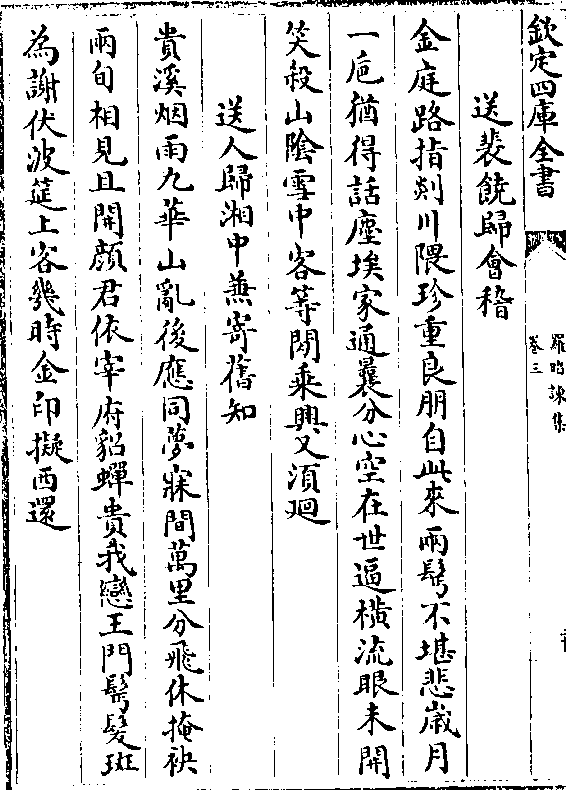 欽定四庫全書
羅昭諫集
卷三
送裴饒歸會稽
金庭路指剡川隈珍重良朋自此來兩鬢不堪悲歲月
一巵猶得話塵埃家通曩分心空在世逼橫流眼未開
笑殺山隂雪中客等閒乗興又須廻
送人歸湘中兼寄舊知
貴溪烟雨九華山亂後應同夢寐間萬里分飛休掩袂
兩旬相見且開顔君依宰府貂蟬貴我戀王門鬢髮斑
為謝伏波筵上客幾時金印擬西還